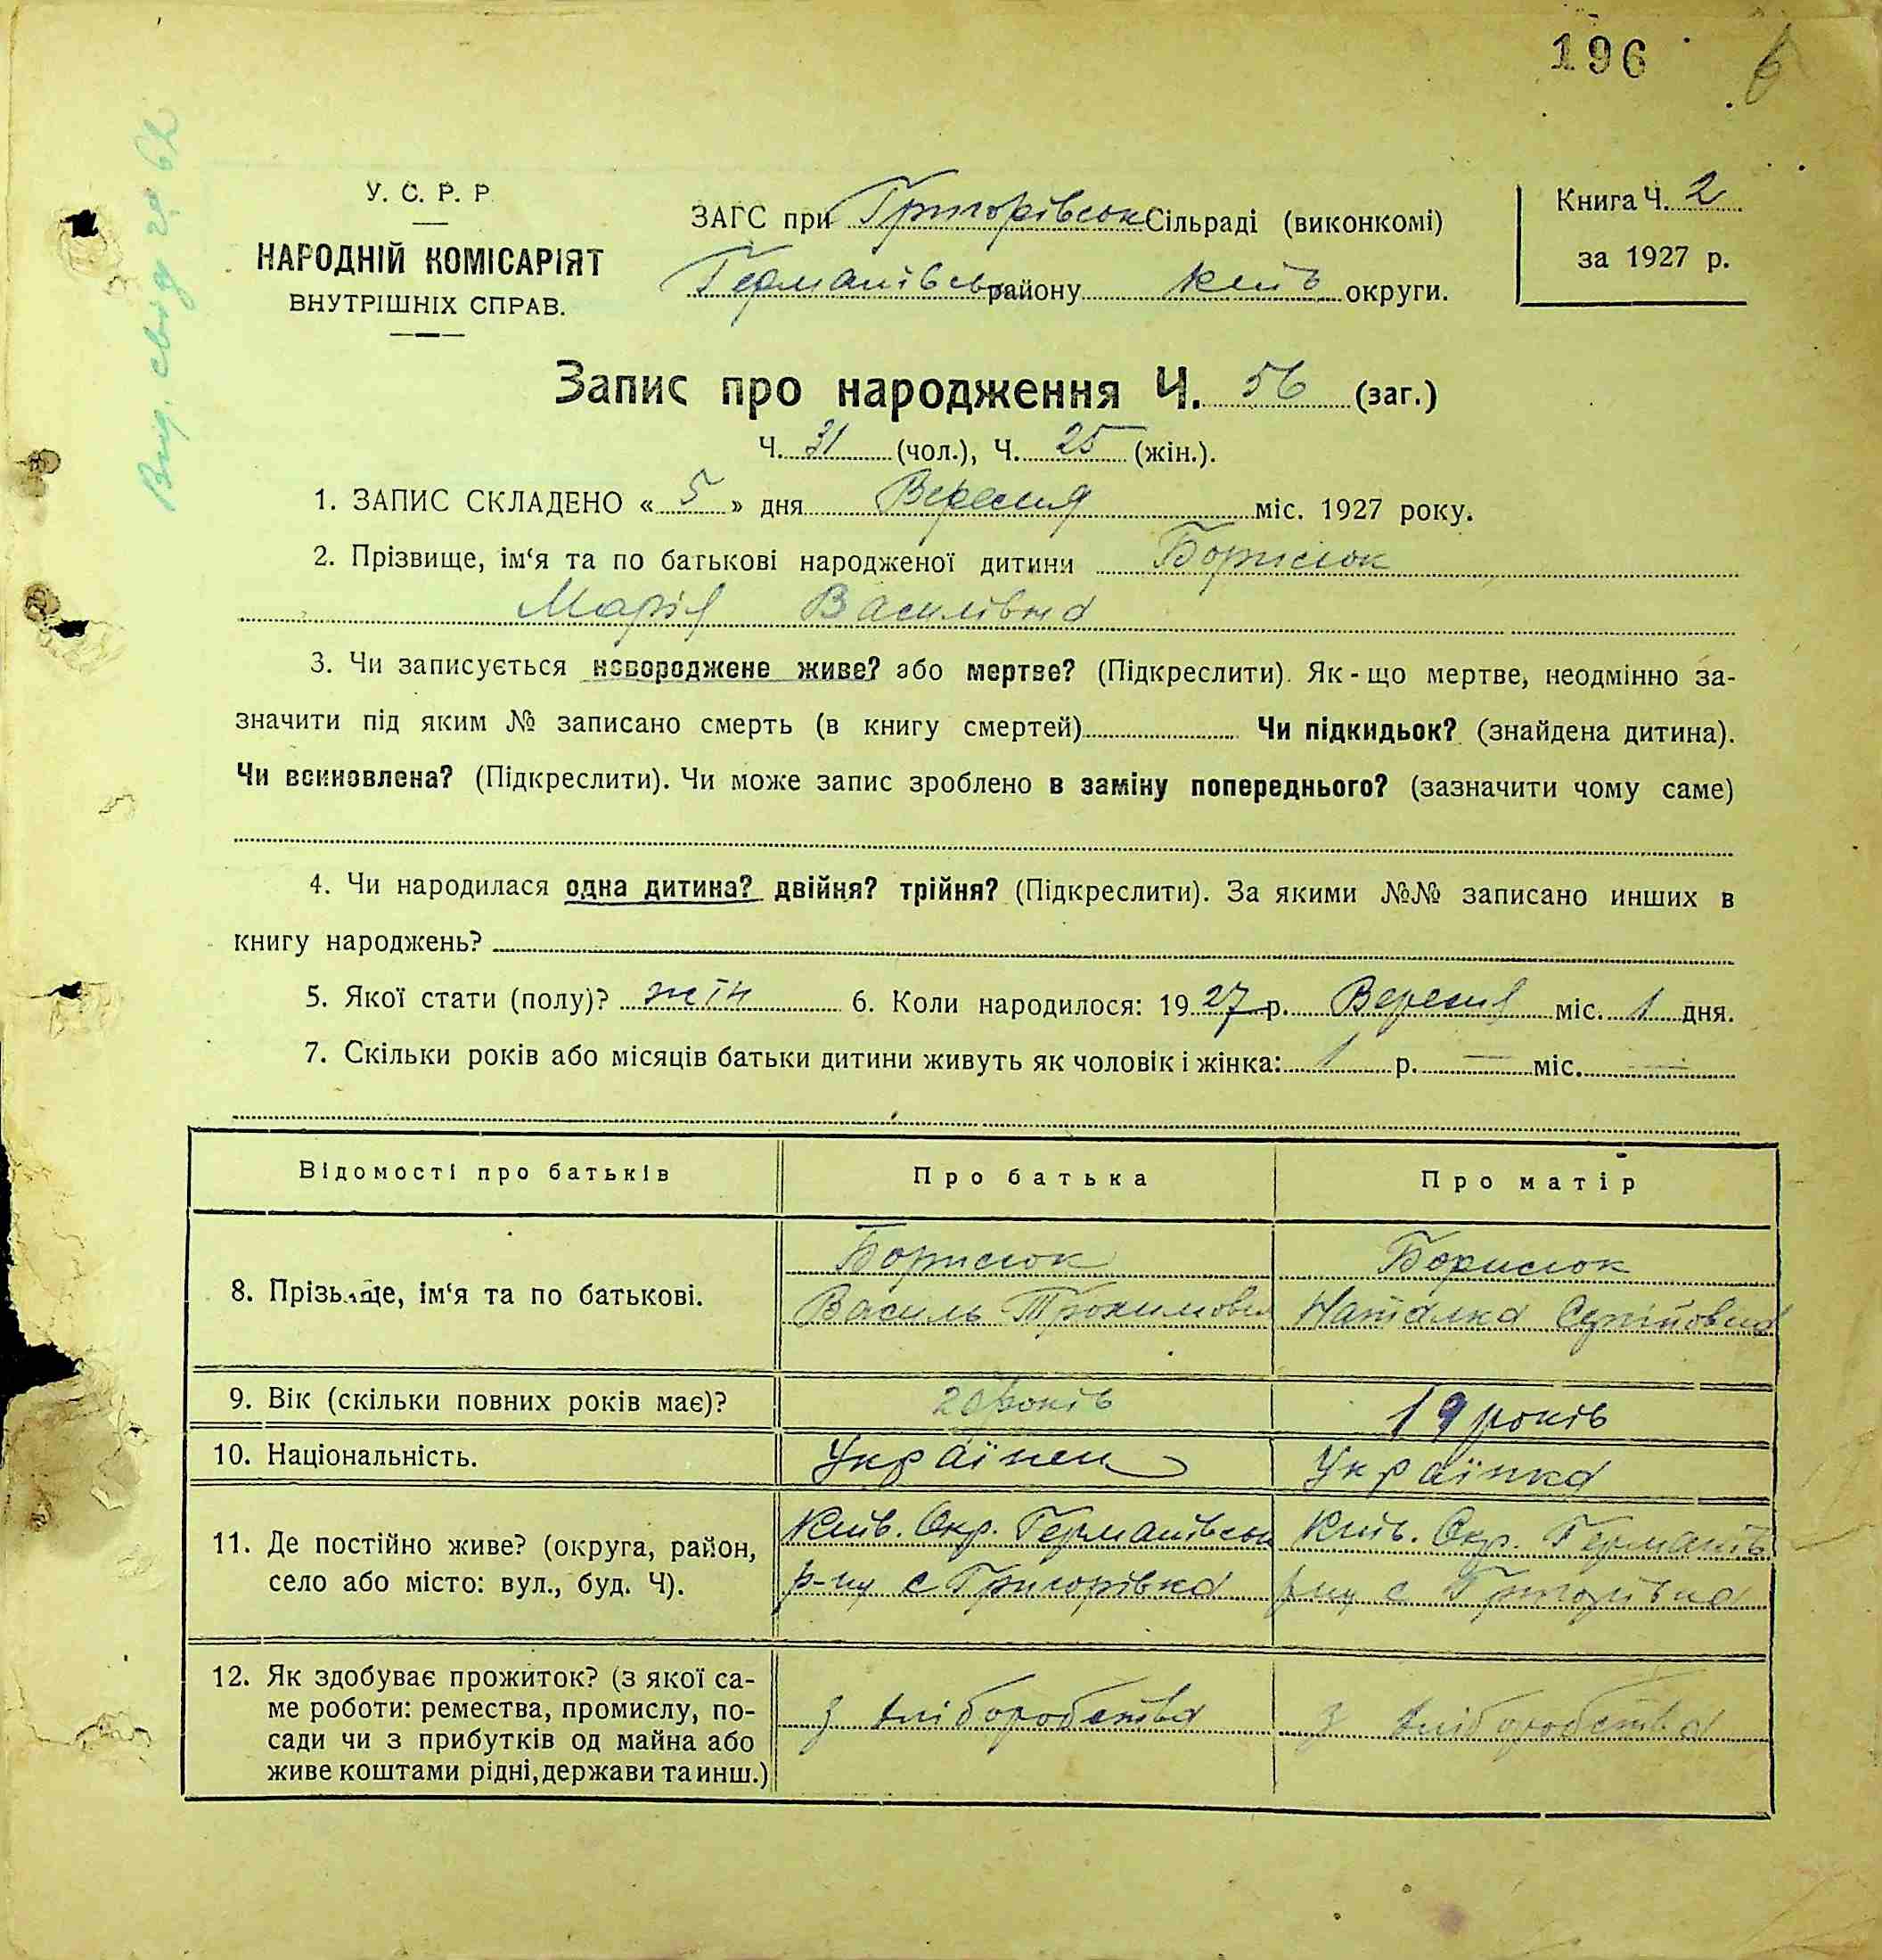 196
Вид. свид 2го 62
У. С. Р. Р
НАРОДНІЙ КОМІСАРІЯТ
ВНУТРІШНІХ СПРАВ.
ЗАГС при Григорівськ Сільраді (виконкомі)
Германівськ району Київ округи.
Книга Ч. 2
за 1927 р.
Запис про народження Ч. 56 (заг.)
Ч. 31 (чол.), Ч. 25 (жін.).
1. ЗАПИС СКЛАДЕНО « 5 » дня Вересня міс. 1927 року.
2. Прізвище, ім‘я та по батькові народженої дитини Борисюк
Марія Василівна
3. Чи записується новороджене живе? або мертве? (Підкреслити). Як - що мертве, неодмінно за-
значити під яким № записано смерть (в книгу смертей) Чи підкидьок? (знайдена дитина).
Чи всиновлена? (Підкреслити). Чи може запис зроблено в заміну попереднього? (зазначити чому саме)
4. Чи народилася одна дитина? двійня? трійня? (Підкреслити). За якими №№ записано инших в
книгу народжень?
5. Якої стати (полу)? жін 6. Коли народилося: 1927 р. Вересня міс. 1 дня.
7. Скільки років або місяців батьки дитини живуть як чоловік і жінка: 1 р. — міс. —
Відомості про батьків Про батька Про матір
8. Прізвище, ім‘я та по батькові.
Борисюк
Василь Трохимович
Борисюк
Наталка Сергійовна
9. Вік (скільки повних років має)? 20 років 19 років
10. Національність. Українец Українка
11. Де постійно живе? (округа, район,
село або місто: вул., буд. Ч).
Київ. Окр. Германівськ
р-ну с Григорівка
Київ. Окр. Германів
р-ну с Григорівка
12. Як здобуває прожиток? (з якої са-
ме роботи: ремества, промислу, по-
сади чи з прибутків од майна або
живе коштами рідні, держави та инш.)
з хліборобства
з хліборобства